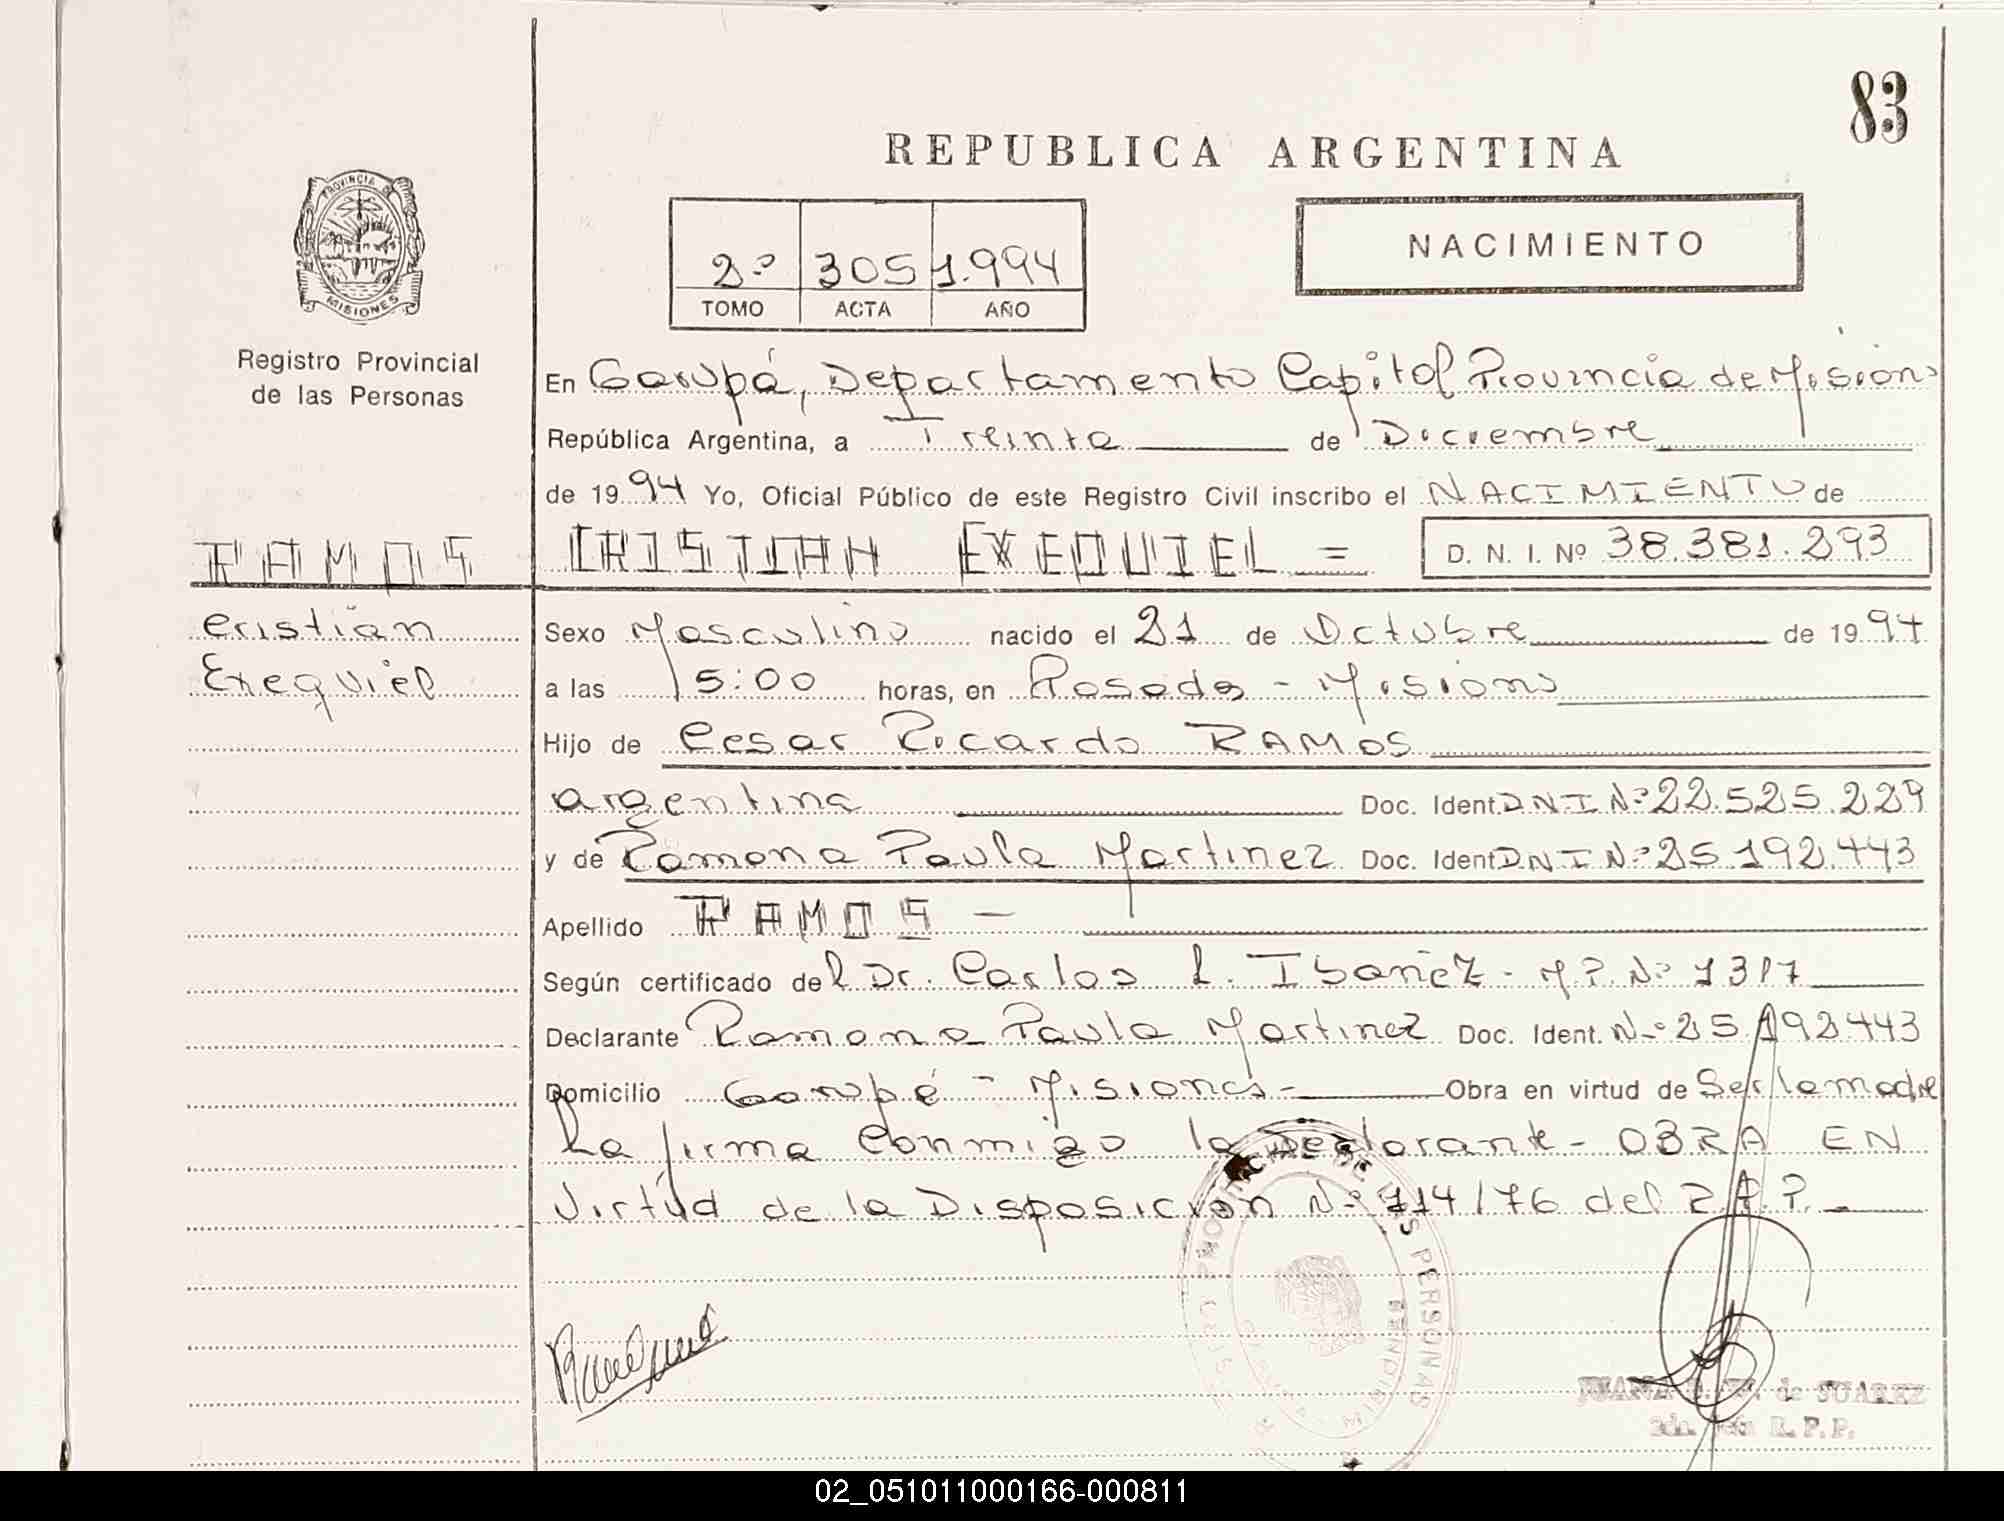 83
REPUBLICA ARGENTINA
PROVINCIA DE
MISIONES
Registro Provincial
de las Personas
2º 305 1.994
TOMO ACTA AÑO
NACIMIENTO
En Garupá, Departamento Capital Provincia de Misiones
República Argentina, a Treinta de Diciembre
de 1994 Yo, Oficial Público de este Registro Civil inscribo el NACIMIENTO de
RAMOS CRISTIAN EXEQUIEL = D. N. I. Nº 38.381.293
Cristian
Exequiel
Sexo Masculino nacido el 21 de Octubre de 1994
a las 15:00 horas, en Posadas - Misiones
Hijo de Cesar Ricardo RAMOS
argentina Doc. Ident. DNI Nº 22.525.229
y de Ramona Paula Martinez Doc. Ident DNI Nº 25192.443
Apellido RAMOS -
Según certificado del Dr. Carlos L. Ibañez - M.P. Nº 1317
Declarante Ramona Paula Martinez Doc. Ident. Nº 25.192443
Domicilio Garupá - Misiones - Obra en virtud de Ser la madre
La firma Conmigo la Declarante - OBRA EN
Virtud de la Disposicion Nº 114/76 del R.P.P. -
PROVINCIAL DE LAS PERSONAS
de SUAREZ
R.P.P.
02_051011000166-000811